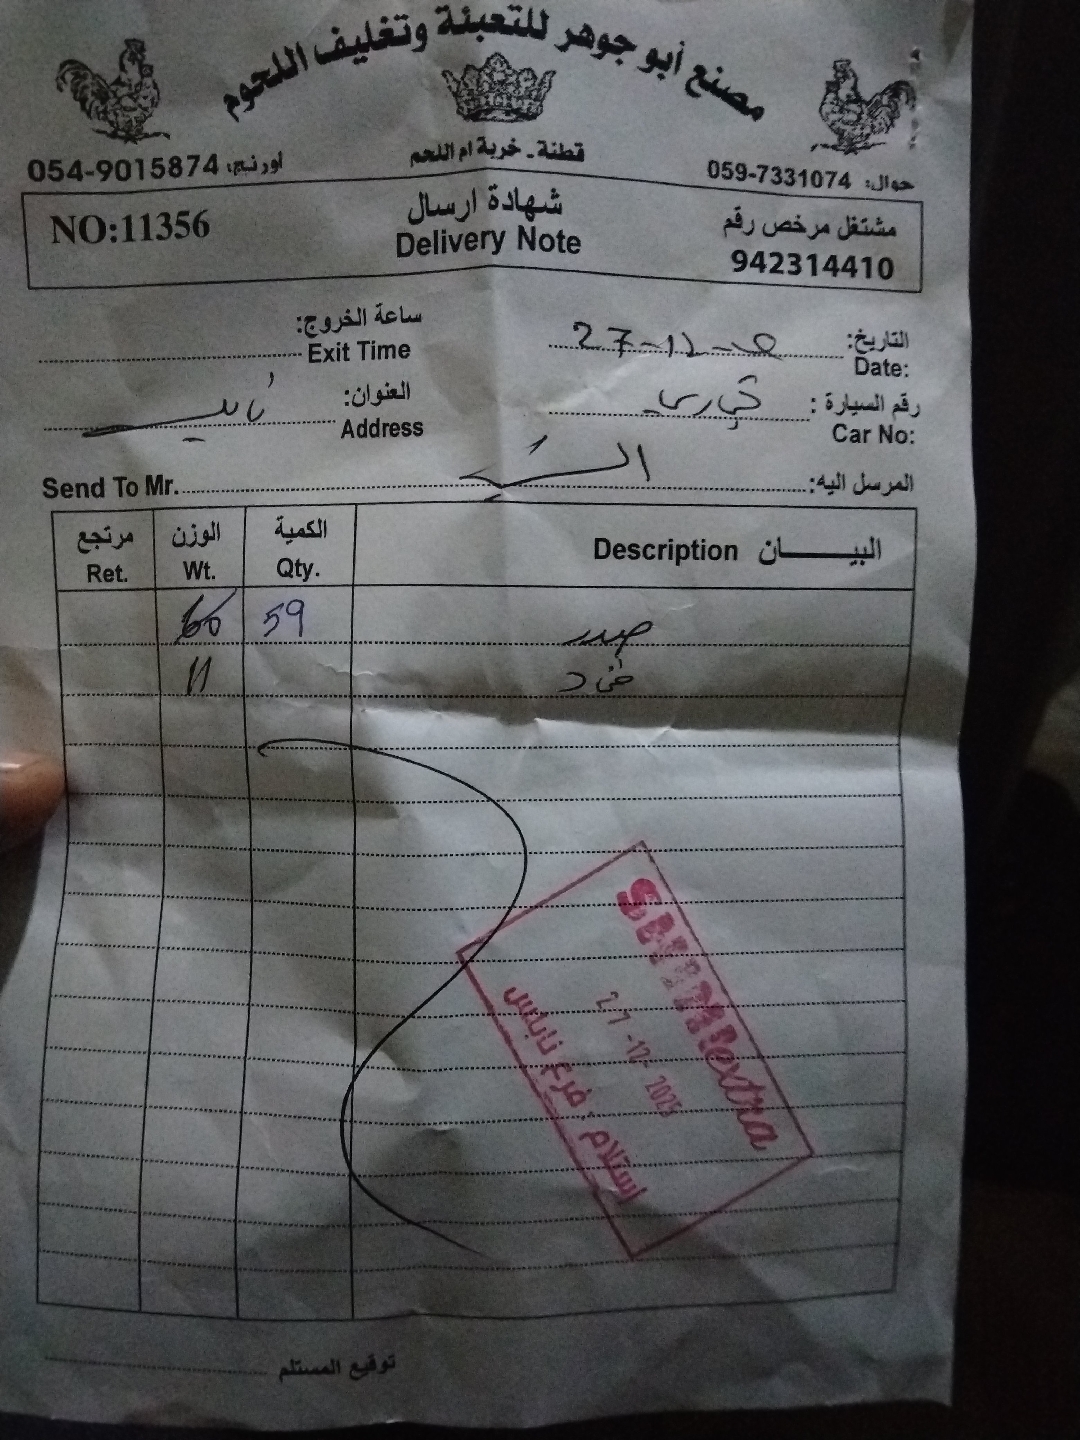 مصنع أبو جوهر للتعبئة وتغليف اللحوم
قطنة - خربة ام اللحم
جوال: 059-7331074
اورنج: 054-9015874
مشتغل مرخص رقم
942314410
شهادة ارسال
Delivery Note
NO:11356
التاريخ: 27-12-
Date:
ساعة الخروج:
Exit Time
رقم السيارة :
Car No:
العنوان:
Address
المرسل اليه: Send To Mr.
البيـــــــان Description
الكمية
Qty.
الوزن
Wt.
مرتجع
Ret.
صدر 59
11
SAMAMextra
27-12-2025
استلام . فرع نابلس
توقيع المستلم